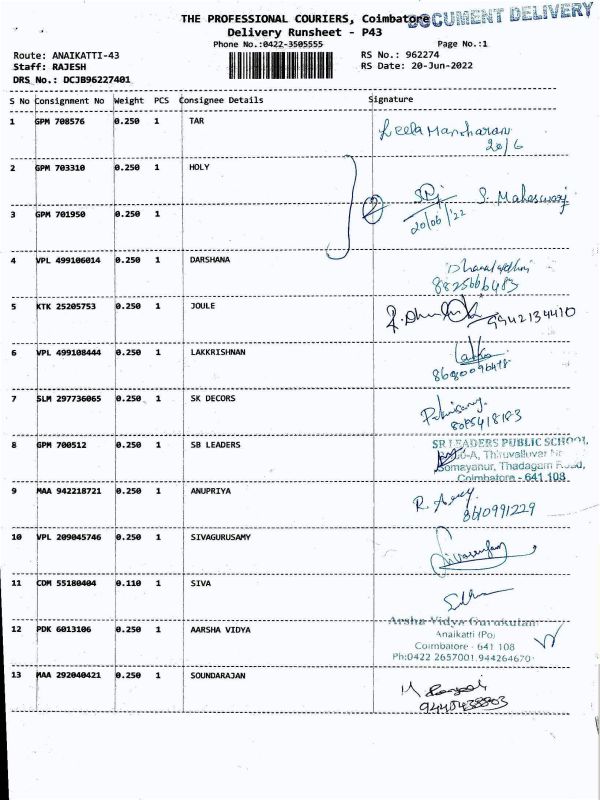 THE PROFESSIONAL COURIERS, Coimbatore
DOCUMENT DELIVERY
Delivery Runsheet - P43
Phone No.:0422-3505555
Page No.:1
Route: ANAIKATTI-43
RS No.: 962274
Staff: RAJESH
RS Date: 20-Jun-2022
DRS No.: DCJB96227401
S No Consignment No Weight PCS Consignee Details Signature
1 GPM 708576 0.250 1 TAR
Leela Manoharan
20/6
2 GPM 703310 0.250 1 HOLY
2 S. Maheswari
20/06/22
3 GPM 701950 0.250 1
4 VPL 499106014 0.250 1 DARSHANA
5 KTK 25205753 0.250 1 JOULE
9942134410
6 VPL 499108444 0.250 1 LAKKRISHNAN
7 SLM 297736065 0.250 1 SK DECORS
8 GPM 700512 0.250 1 SB LEADERS
SR LEADERS PUBLIC SCHOOL
Thiruvalluvar Nr
Somayanur, Thadagam Road,
Coimbatore - 641 108
9 MAA 942218721 0.250 1 ANUPRIYA
8610991229
10 VPL 209045746 0.250 1 SIVAGURUSAMY
11 CDM 55180404 0.110 1 SIVA
12 PDK 6013106 0.250 1 AARSHA VIDYA
Arsha Vidya Gurukulam
Anaikatti (Po)
Coimbatore - 641 108
Ph:0422 2657001 944264670
13 MAA 292040421 0.250 1 SOUNDARAJAN